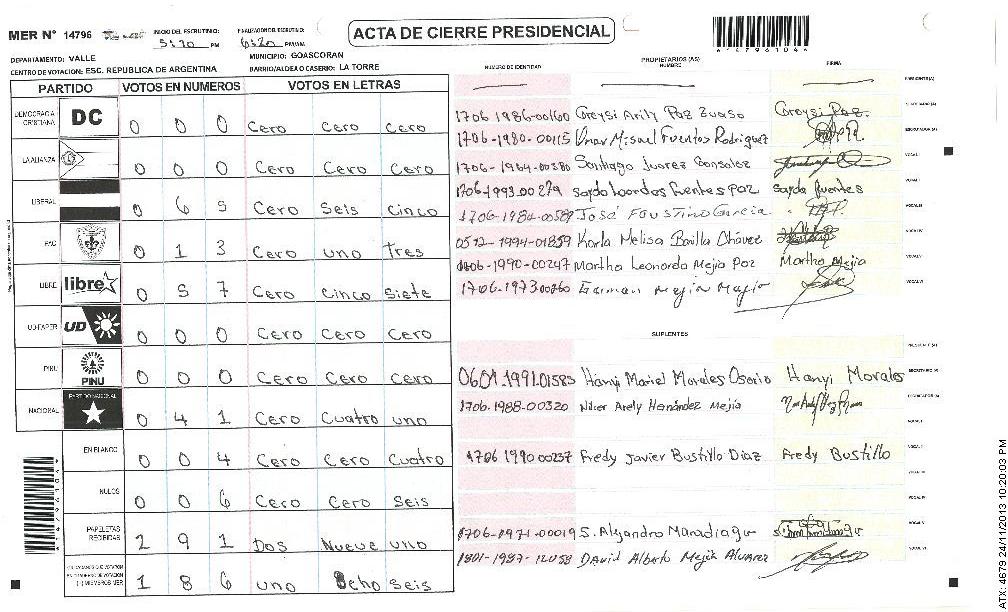 MER N° 14796
INICIO DEL ESCRUTINIO: 5:20 PM
FINALIZACION DEL ESCRUTINIO: 6:20 PM/AM
ACTA DE CIERRE PRESIDENCIAL
DEPARTAMENTO: VALLE
MUNICIPIO: GOASCORAN
CENTRO DE VOTACION: ESC. REPUBLICA DE ARGENTINA
BARRIO/ALDEA O CASERIO: LA TORRE
PARTIDO VOTOS EN NUMEROS VOTOS EN LETRAS
DEMOCRACIA CRISTIANA DC 0 0 0 Cero Cero Cero
LA ALIANZA 0 0 0 Cero Cero Cero
LIBERAL 0 6 5 Cero Seis Cinco
PAC 0 1 3 Cero uno Tres
LIBRE libre 0 5 7 Cero Cinco Siete
UD-FAPER UD 0 0 0 Cero Cero Cero
PINU PINU 0 0 0 Cero Cero Cero
NACIONAL PARTIDO NACIONAL 0 4 1 Cero Cuatro uno
EN BLANCO 0 0 4 Cero Cero Cuatro
NULOS 0 0 6 Cero Cero Seis
PAPELETAS RECIBIDAS 2 9 1 Dos Nueve uno
1 8 6 uno Ocho Seis
NUMERO DE IDENTIDAD PROPIETARIOS (AS) NOMBRE FIRMA
PRESIDENTE(A)
1706 1986-00160 Greysi Arily Paz
1706-1980-00115 Misael Fuentes Rodriguez
1706-1964-00380 Santiago Juarez Gonsolez
1706-1993-00279 Sayda Lourdes fuentes Paz Sayda fuentes
1706-1984-00589 José Faustino Garcia
0512-1994-01859 Karla Melisa Bonilla Chávez
1706-1990-00247 Martha Leonarda Mejia Paz Martha Mejia
1706-1973-00260 Mejia
SUPLENTES
0601-1991-01583 Hanyi Mariel Morales Osorio Hanyi Morales
1706-1988-00320 Arely Hernández Mejía
1706 1990 00237 Fredy Javier Bustillo Diaz Fredy Bustillo
1706-1971-00019 S. Alejandro Maradiaga
David Alberto Mejia Alvarez
ATX: 4679 24/11/2013 10:20:03 PM